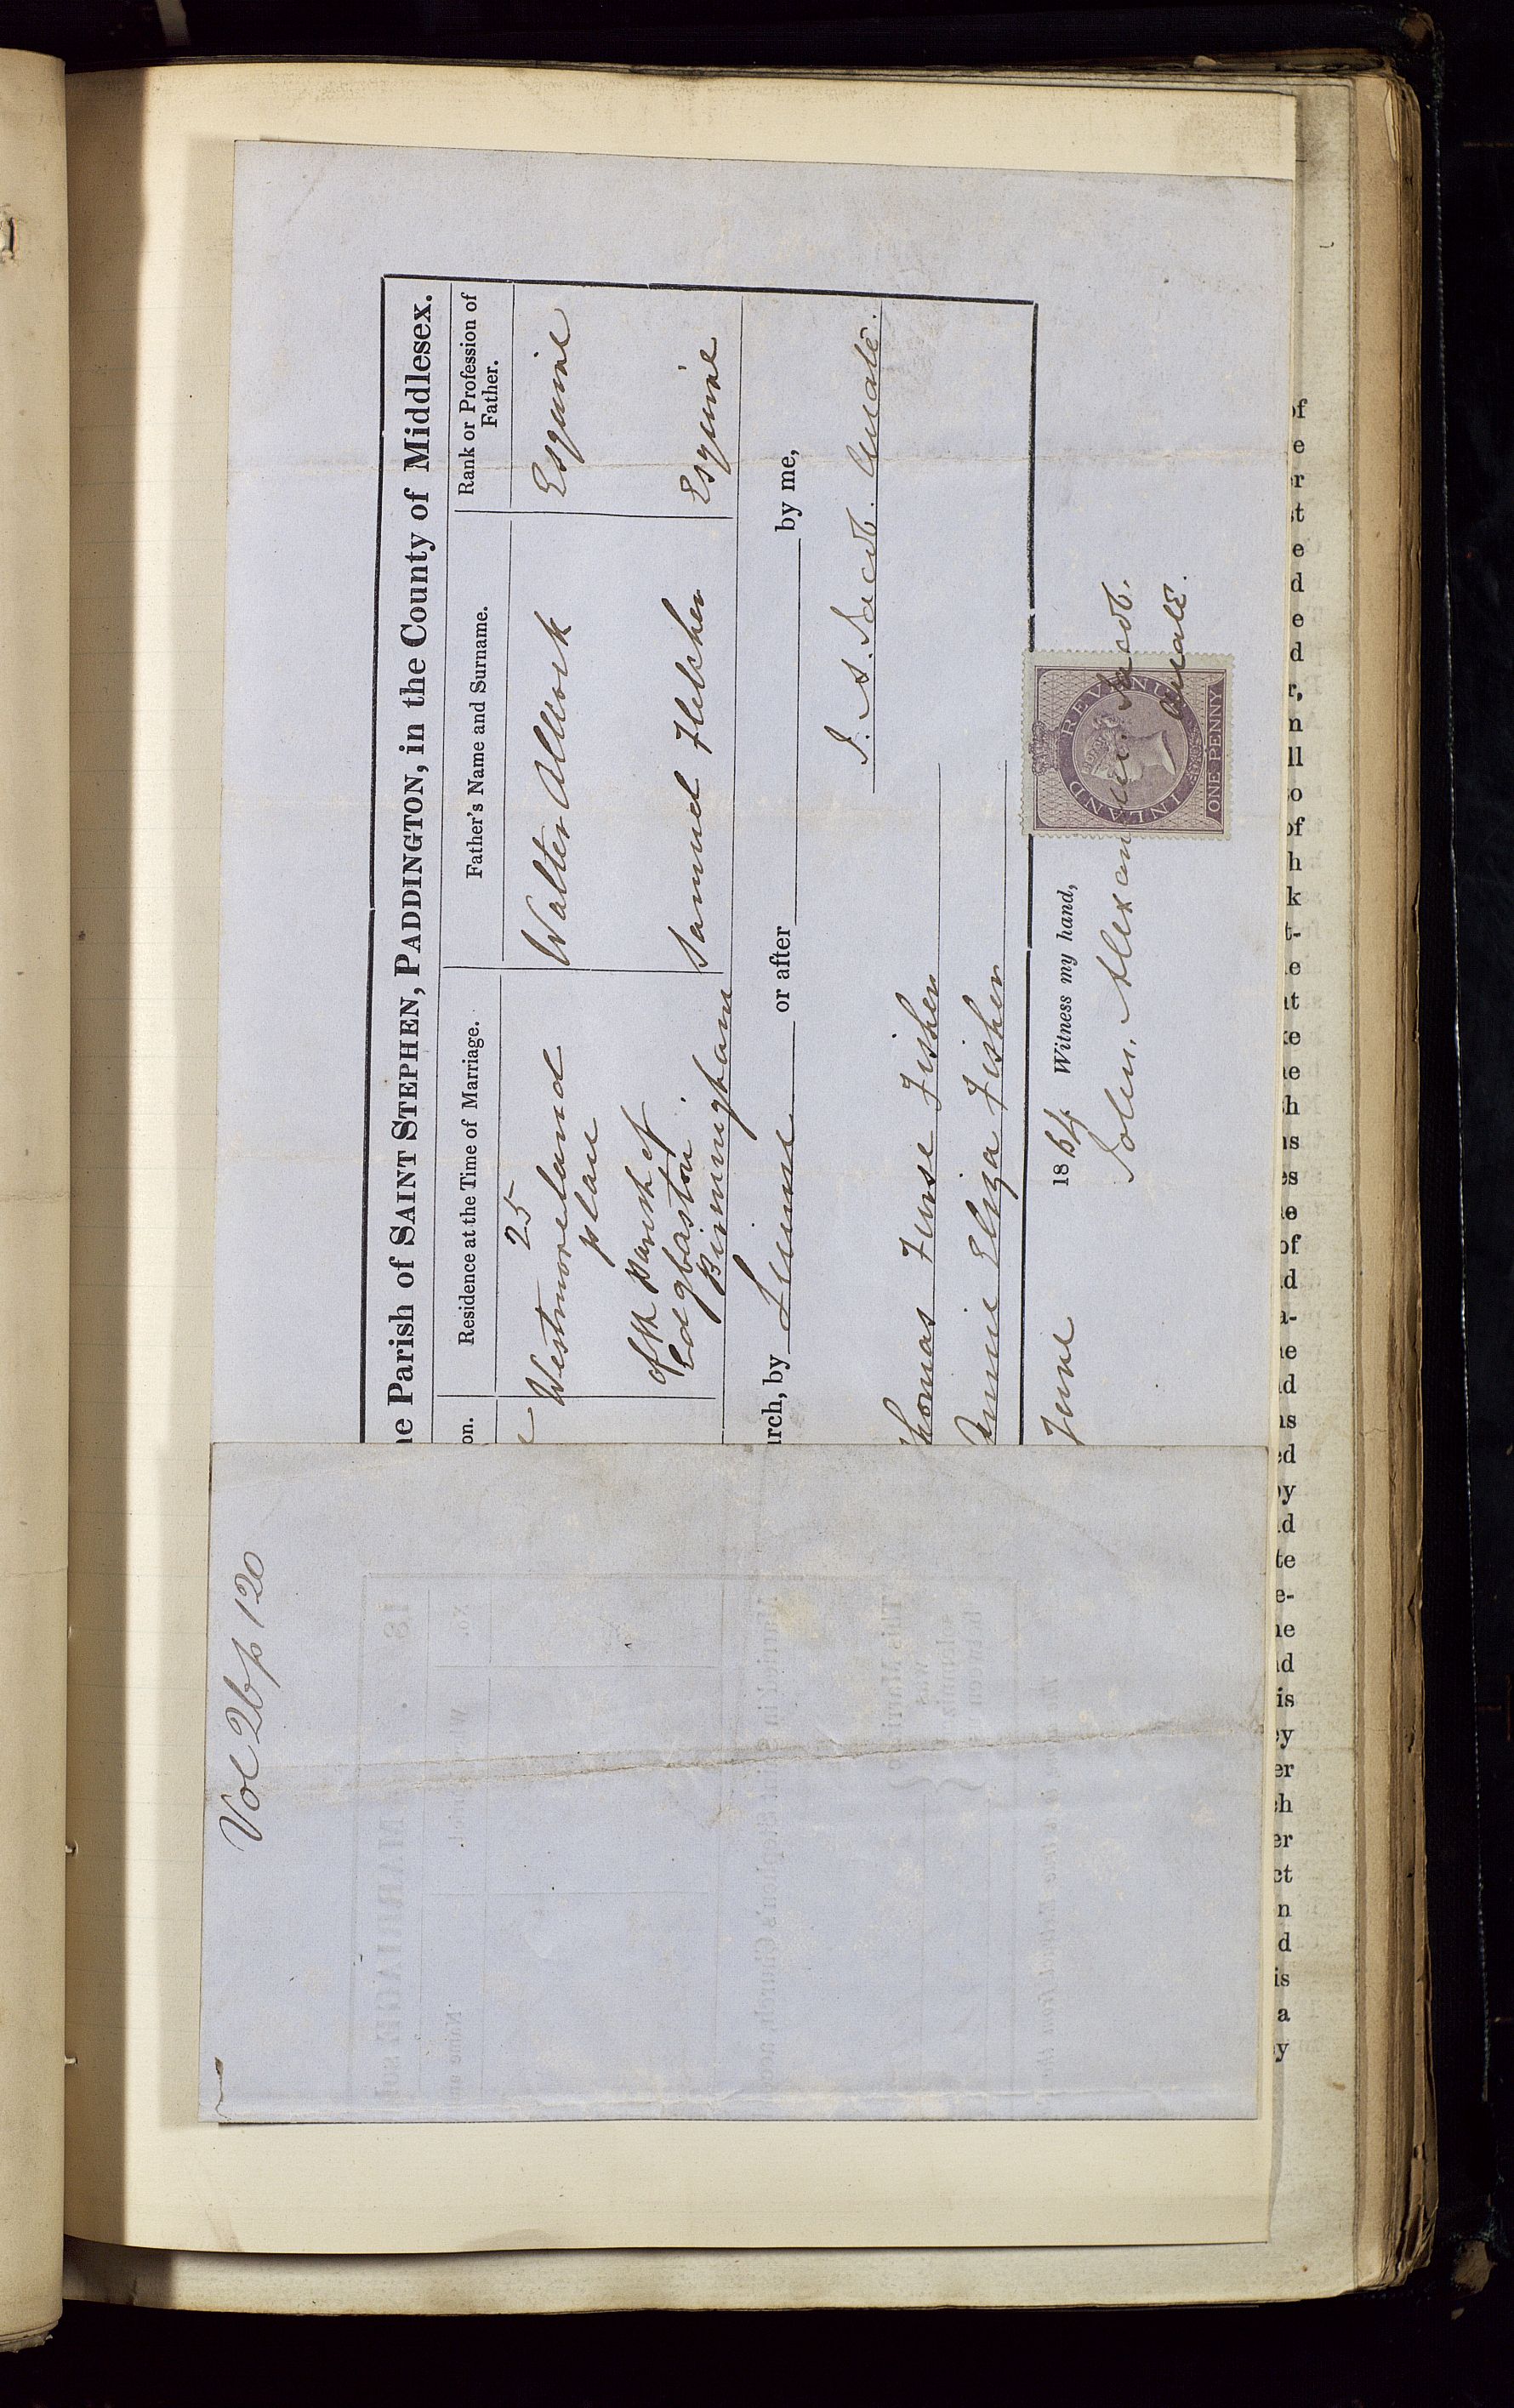 Vol 26 p 120
he Parish of SAINT STEPHEN, PADDINGTON, in the County of Middlesex.
on.
Residence at the Time of Marriage.
Father's Name and Surname.
Rank or Profession of Father.
25
Westmoreland
place
Walter
Esquire
of the Parish of
Edgbaston.
Birmingham
Samuel Fletcher
Esquire
urch, by
License
or after
by me,
J. A. Jacob. Curate.
homas Furse Fisher
Annie Eliza Fisher
June
1864
Witness my hand,
John. Alexander. Jacob.
Curate.
INLAND REVENUE
ONE PENNY